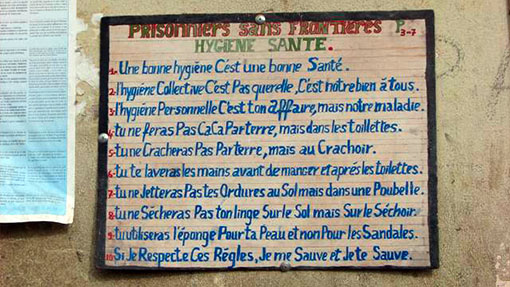 Prisonniers sans Frontières P 3-7
HYGIENE SANTE.
1. Une bonne hygiène C'est une bonne Santé.
2. l'hygiène Collective C'est Pas querelle, C'est notre bien à tous.
3. l'hygiène Personnelle C'est ton affaire, mais notre maladie.
4. tu ne feras Pas CaCa Parterre, mais dans les toillettes.
5. tu ne Cracheras Pas Parterre, mais au Crachoir.
6. tu te laveras les mains avant de manger et après les toilettes.
7. tu ne Jetteras Pas tes Ordures au Sol mais dans une Poubelle.
8. tu ne Sécheras Pas ton linge Sur le Sol mais Sur le Séchoir.
9. tu utiliseras l'éponge Pour ta Peau et non Pour les Sandales.
10. Si Je Respecte Ces Régles, Je me Sauve et Je te Sauve.